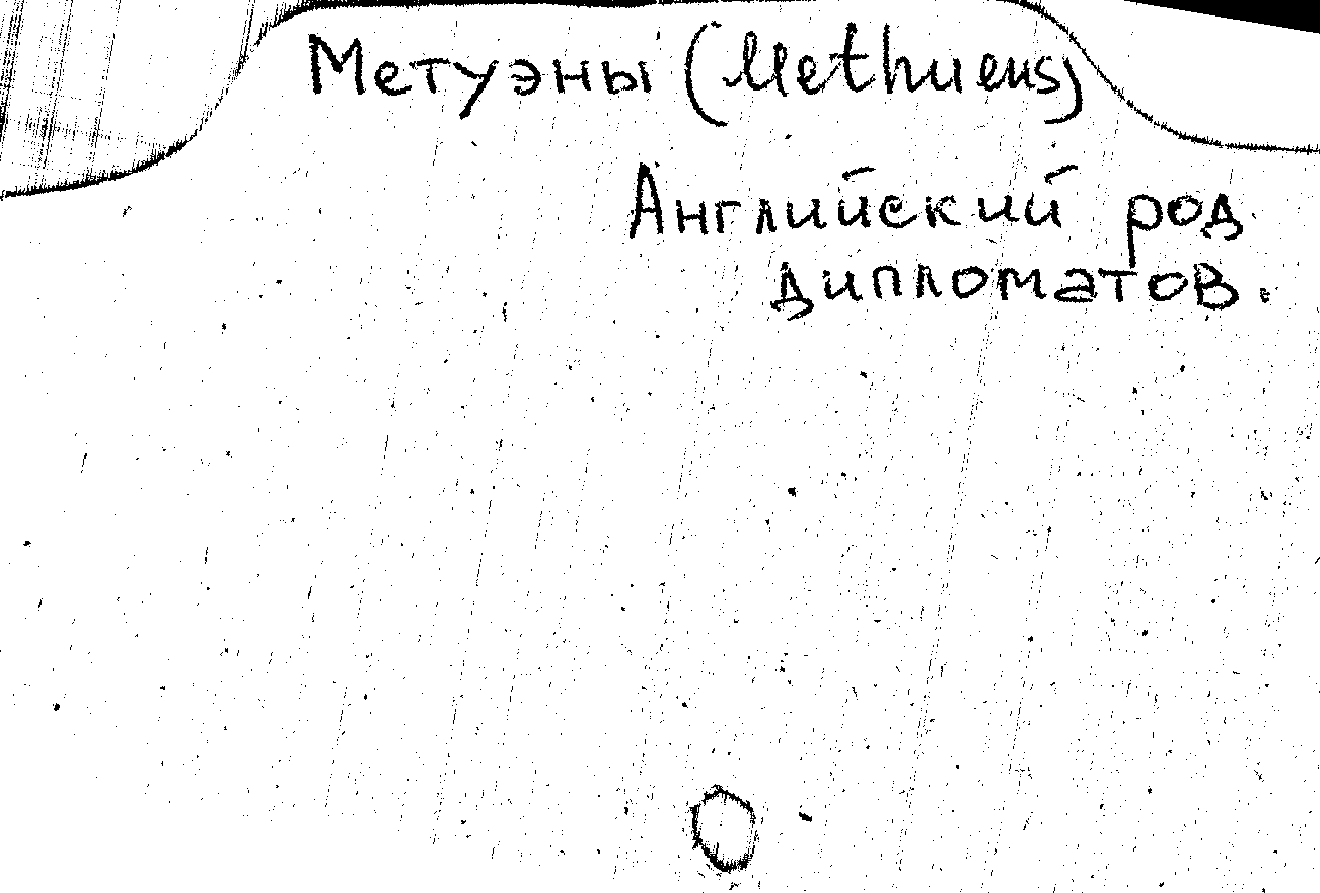 Метуэны (Methuens)
Английский род
дипломатов.